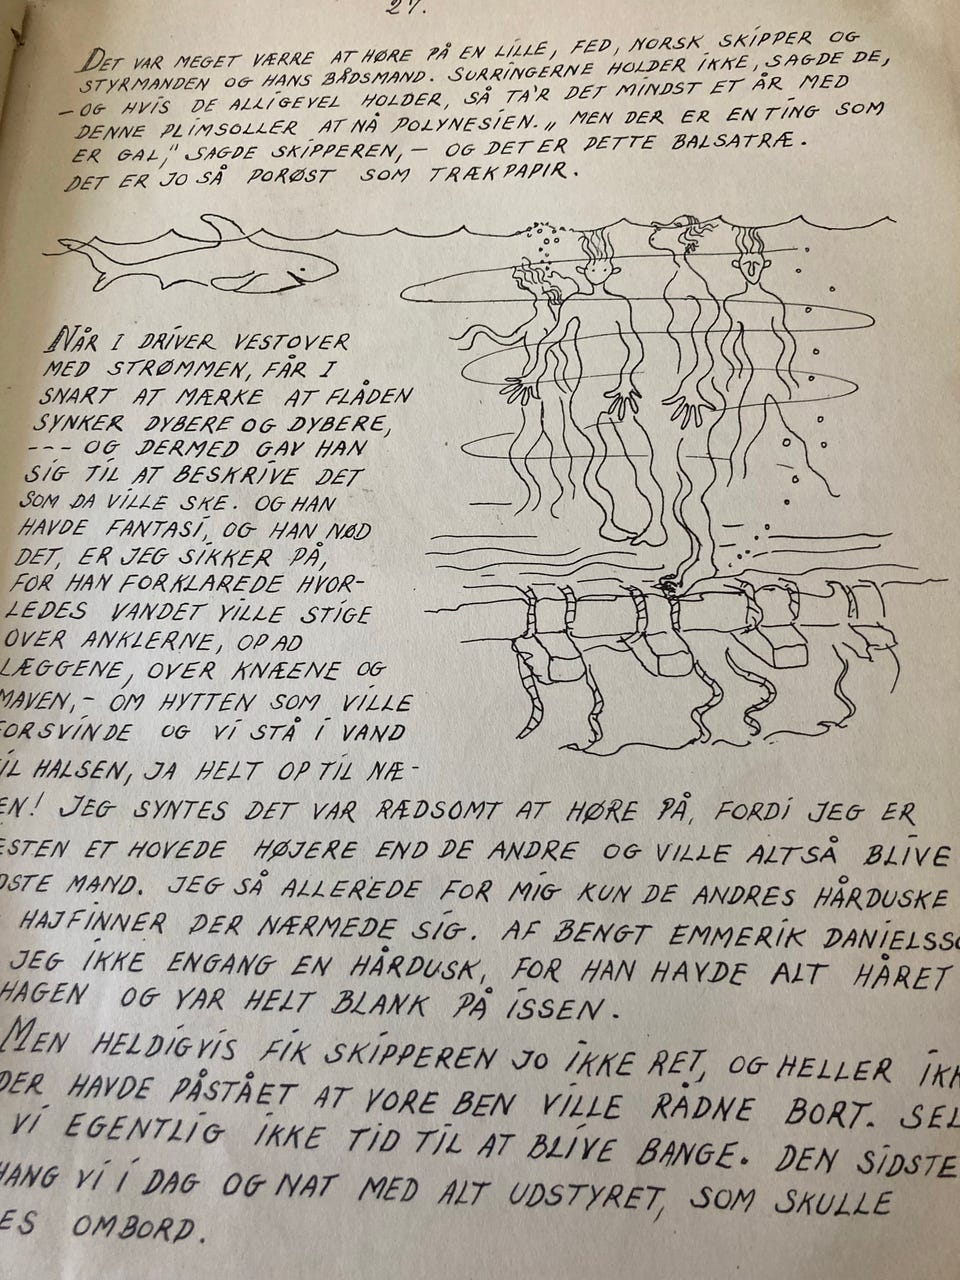 27.
DET VAR MEGET VÆRRE AT HØRE PÅ EN LILLE, FED, NORSK SKIPPER OG
STYRMANDEN OG HANS BÅDSMAND. SURRINGERNE HOLDER IKKE, SAGDE DE,
— OG HVIS DE ALLIGEVEL HOLDER, SÅ TA'R DET MINDST ET ÅR MED
DENNE PLIMSOLLER AT NÅ POLYNESIEN. „ MEN DER ER EN TING SOM
ER GAL," SAGDE SKIPPEREN, — OG DET ER DETTE BALSATRÆ.
DET ER JO SÅ PORØST SOM TRÆKPAPIR.
NÅR I DRIVER VESTOVER
MED STRØMMEN, FÅR I
SNART AT MÆRKE AT FLÅDEN
SYNKER DYBERE OG DYBERE,
--- OG DERMED GAV HAN
SIG TIL AT BESKRIVE DET
SOM DA VILLE SKE. OG HAN
HAVDE FANTASI, OG HAN NØD
DET, ER JEG SIKKER PÅ,
FOR HAN FORKLAREDE HVOR-
LEDES VANDET VILLE STIGE
OVER ANKLERNE, OP AD
LÆGGENE, OVER KNÆENE OG
MAVEN, - OM HYTTEN SOM VILLE
FORSVINDE OG VI STÅ I VAND
TIL HALSEN, JA HELT OP TIL NÆ-
EN! JEG SYNTES DET VAR RÆDSOMT AT HØRE PÅ, FORDI JEG ER
ESTEN ET HOVEDE HØJERE END DE ANDRE OG VILLE ALTSÅ BLIVE
DSTE MAND. JEG SÅ ALLEREDE FOR MIG KUN DE ANDRES HÅRDUSKE
HAJFINNER DER NÆRMEDE SIG. AF BENGT EMMERIK DANIELSSO
JEG IKKE ENGANG EN HÅRDUSK, FOR HAN HAVDE ALT HÅRET
HAGEN OG VAR HELT BLANK PÅ ISSEN.
MEN HELDIGVIS FIK SKIPPEREN JO IKKE RET, OG HELLER IKK
DER HAVDE PÅSTÅET AT VORE BEN VILLE RÅDNE BORT. SEL
VI EGENTLIG IKKE TID TIL AT BLIVE BANGE. DEN SIDSTE
HANG VI I DAG OG NAT MED ALT UDSTYRET, SOM SKULLE
ES OMBORD.